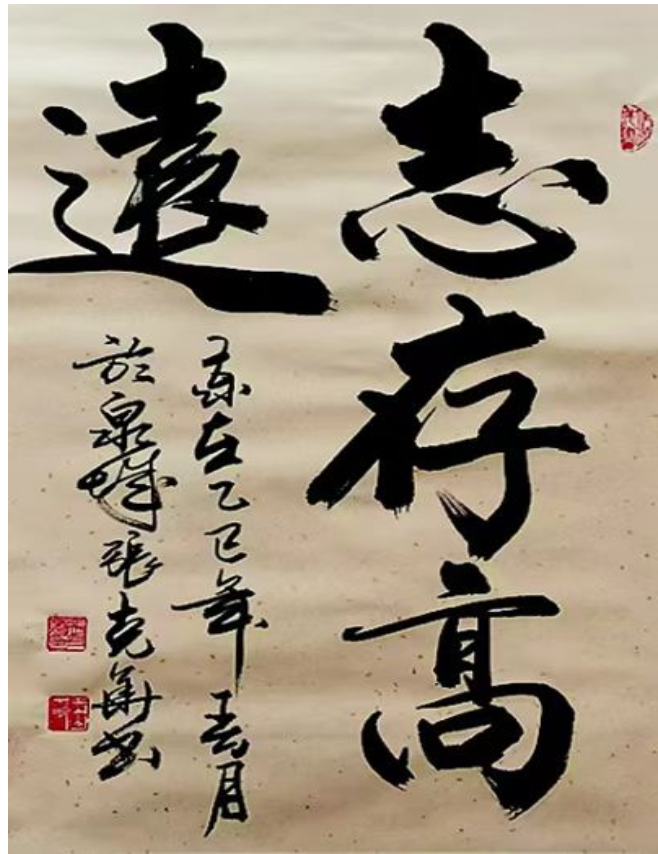 志存高
遠
歲在乙巳年春月
於泉城張克軍書